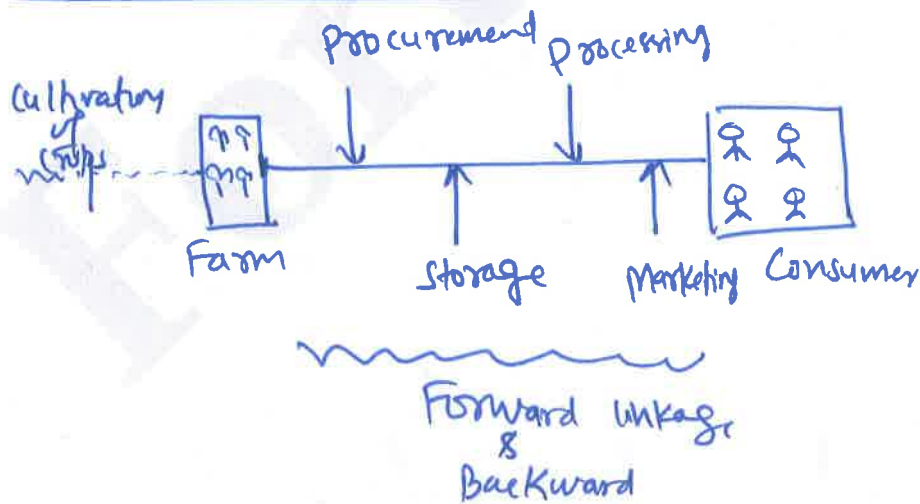 Procurement
Processing
Cultivation
of
Crops
Farm
Storage
Marketing
Consumer
Forward linkage
&
Backward